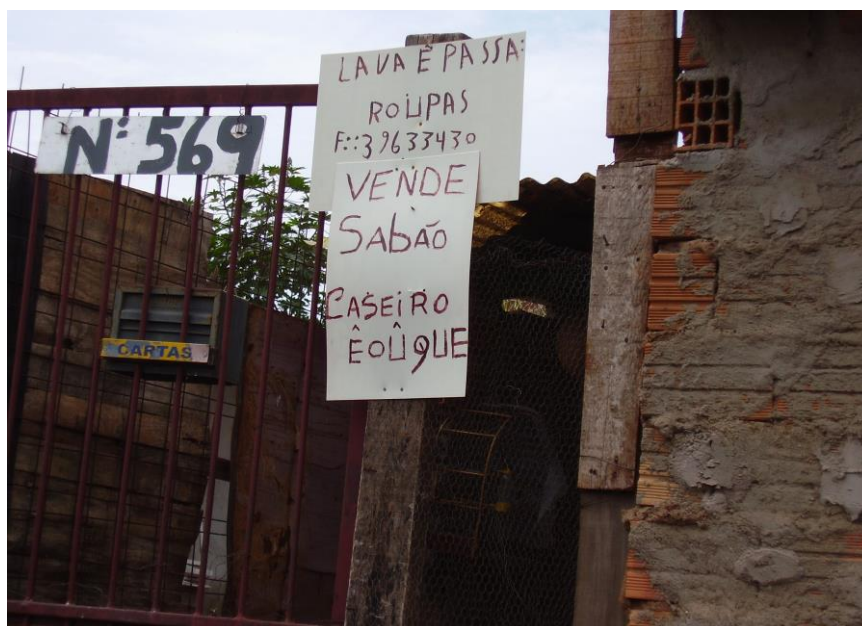 Nº 569
CARTAS
LAVA É PASSA:
ROUPAS
F::39633430
VENDE
SAbÃO
CASEIRO
ÊOÛQUE